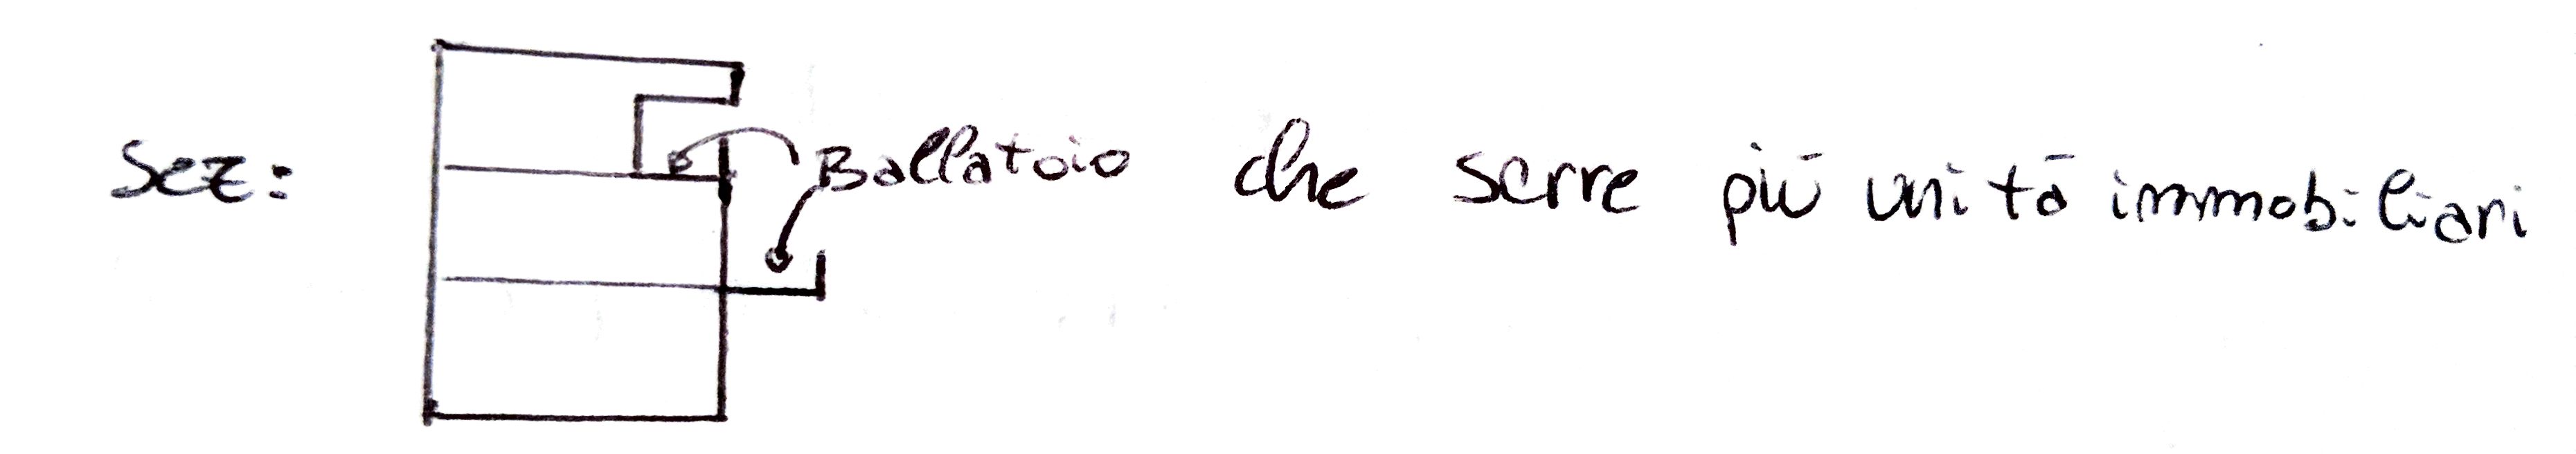 Sez: Ballatoio che serre più unità immobiliari